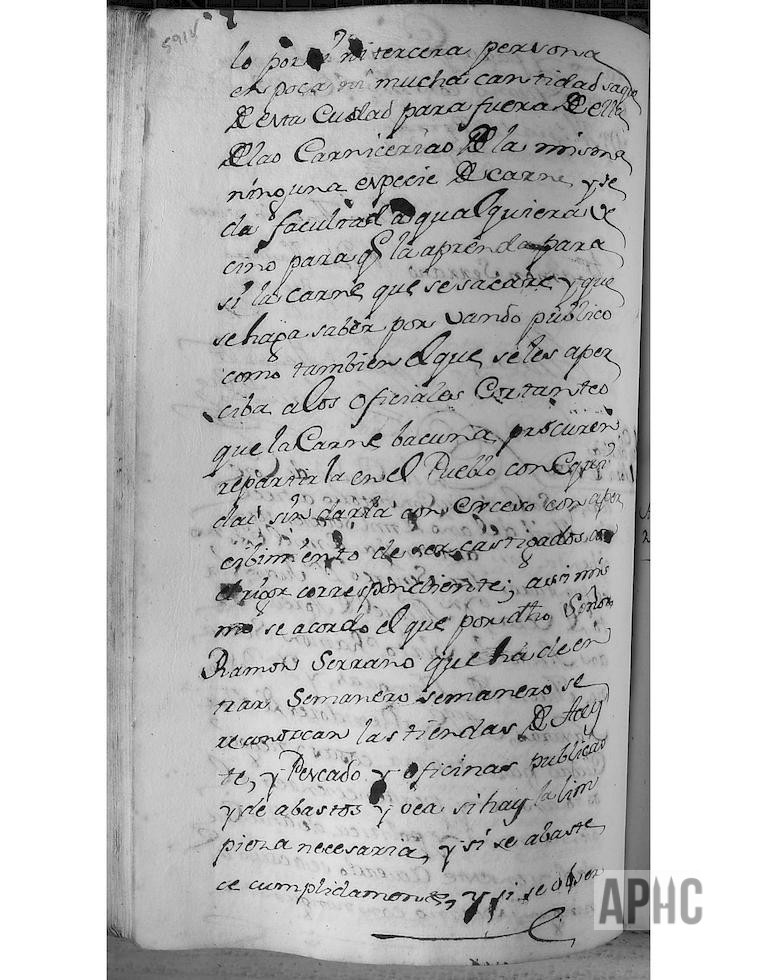 591v
lo por si ni tercera persona
en poca ni mucha cantidad saque
de esta Ciudad para fuera de ella
de las Carnicerias de la misma
ninguna especie de carne, y se
da facultad a qualquiera Ve
cino para q la aprenda para
si la carne que se sacare, y que
se haga saber por vando publico
como tambien el que se les aper
ciba a los oficiales Cortantes
que la Carne bacuna, procuren
repartirla en el Pueblo con
dad sin darla con exceso con aper
cibimiento de ser castigados con
el rigor correspondiente; assi mis
mo se acordo el que por dho Señor
Ramon Serrano que ha de en
trar Semanero semanero se
reconozcan las tiendas de Azey
te, y Pescado y oficinas publicas
y de abastos y vea si hay la lim
pieza necesaria, y si se abaste
ce cumplidamente, y si se obser
APHC